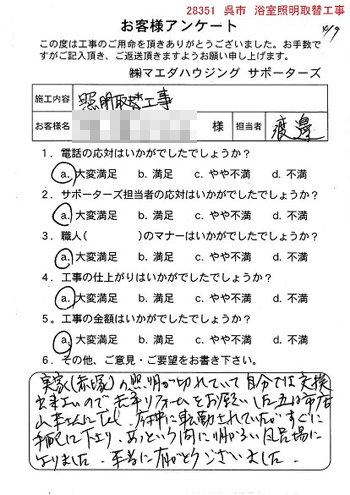 28351 呉市 浴室照明取替工事
お客様アンケート
10/9
この度は工事のご用命を頂きありがとうございました。お手数で
すがご記入頂き、ご返送頂きますようお願い申し上げます。
㈱マエダハウジング サポーターズ
施工内容 照明取替工事
お客様名 様 担当者 渡邊
1．電話の応対はいかがでしたでしょうか？
a. 大変満足 b. 満足 c. やや不満 d. 不満
2．サポーターズ担当者の応対はいかがでしたでしょうか？
a. 大変満足 b. 満足 c. やや不満 d. 不満
3．職人( )のマナーはいかがでしたでしょうか？
a. 大変満足 b. 満足 c. やや不満 d. 不満
4．工事の仕上がりはいかがでしたでしょうか？
a. 大変満足 b. 満足 c. やや不満 d. 不満
5．工事の金額はいかがでしたでしょうか？
a. 大変満足 b. 満足 c. やや不満 d. 不満
6．その他、ご意見・ご要望をお書き下さい。
実家の照明が切れていて自分では交換
出来ないので リフォームをお願いした
山本さんに 転勤されていたがすぐに
手配下さり、あっという間に明るい風呂場に
なりました。本当に有がとうございました。